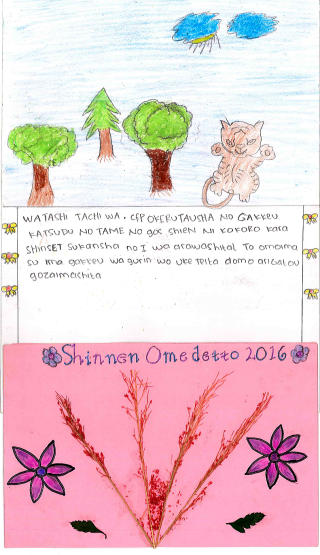 WATASHI TACHI WA. CFP OKERUTAUSHA NO GAKKEU
KATSUDU NO TAME NO goc SHIEN NI KOKORO kara
ShinSET sukansha no I wo arawashital To omoima
su ima gakkeu wa gurin wo uke teita domo arigatou
gozaimashita
Shinnen Omedetto 2016